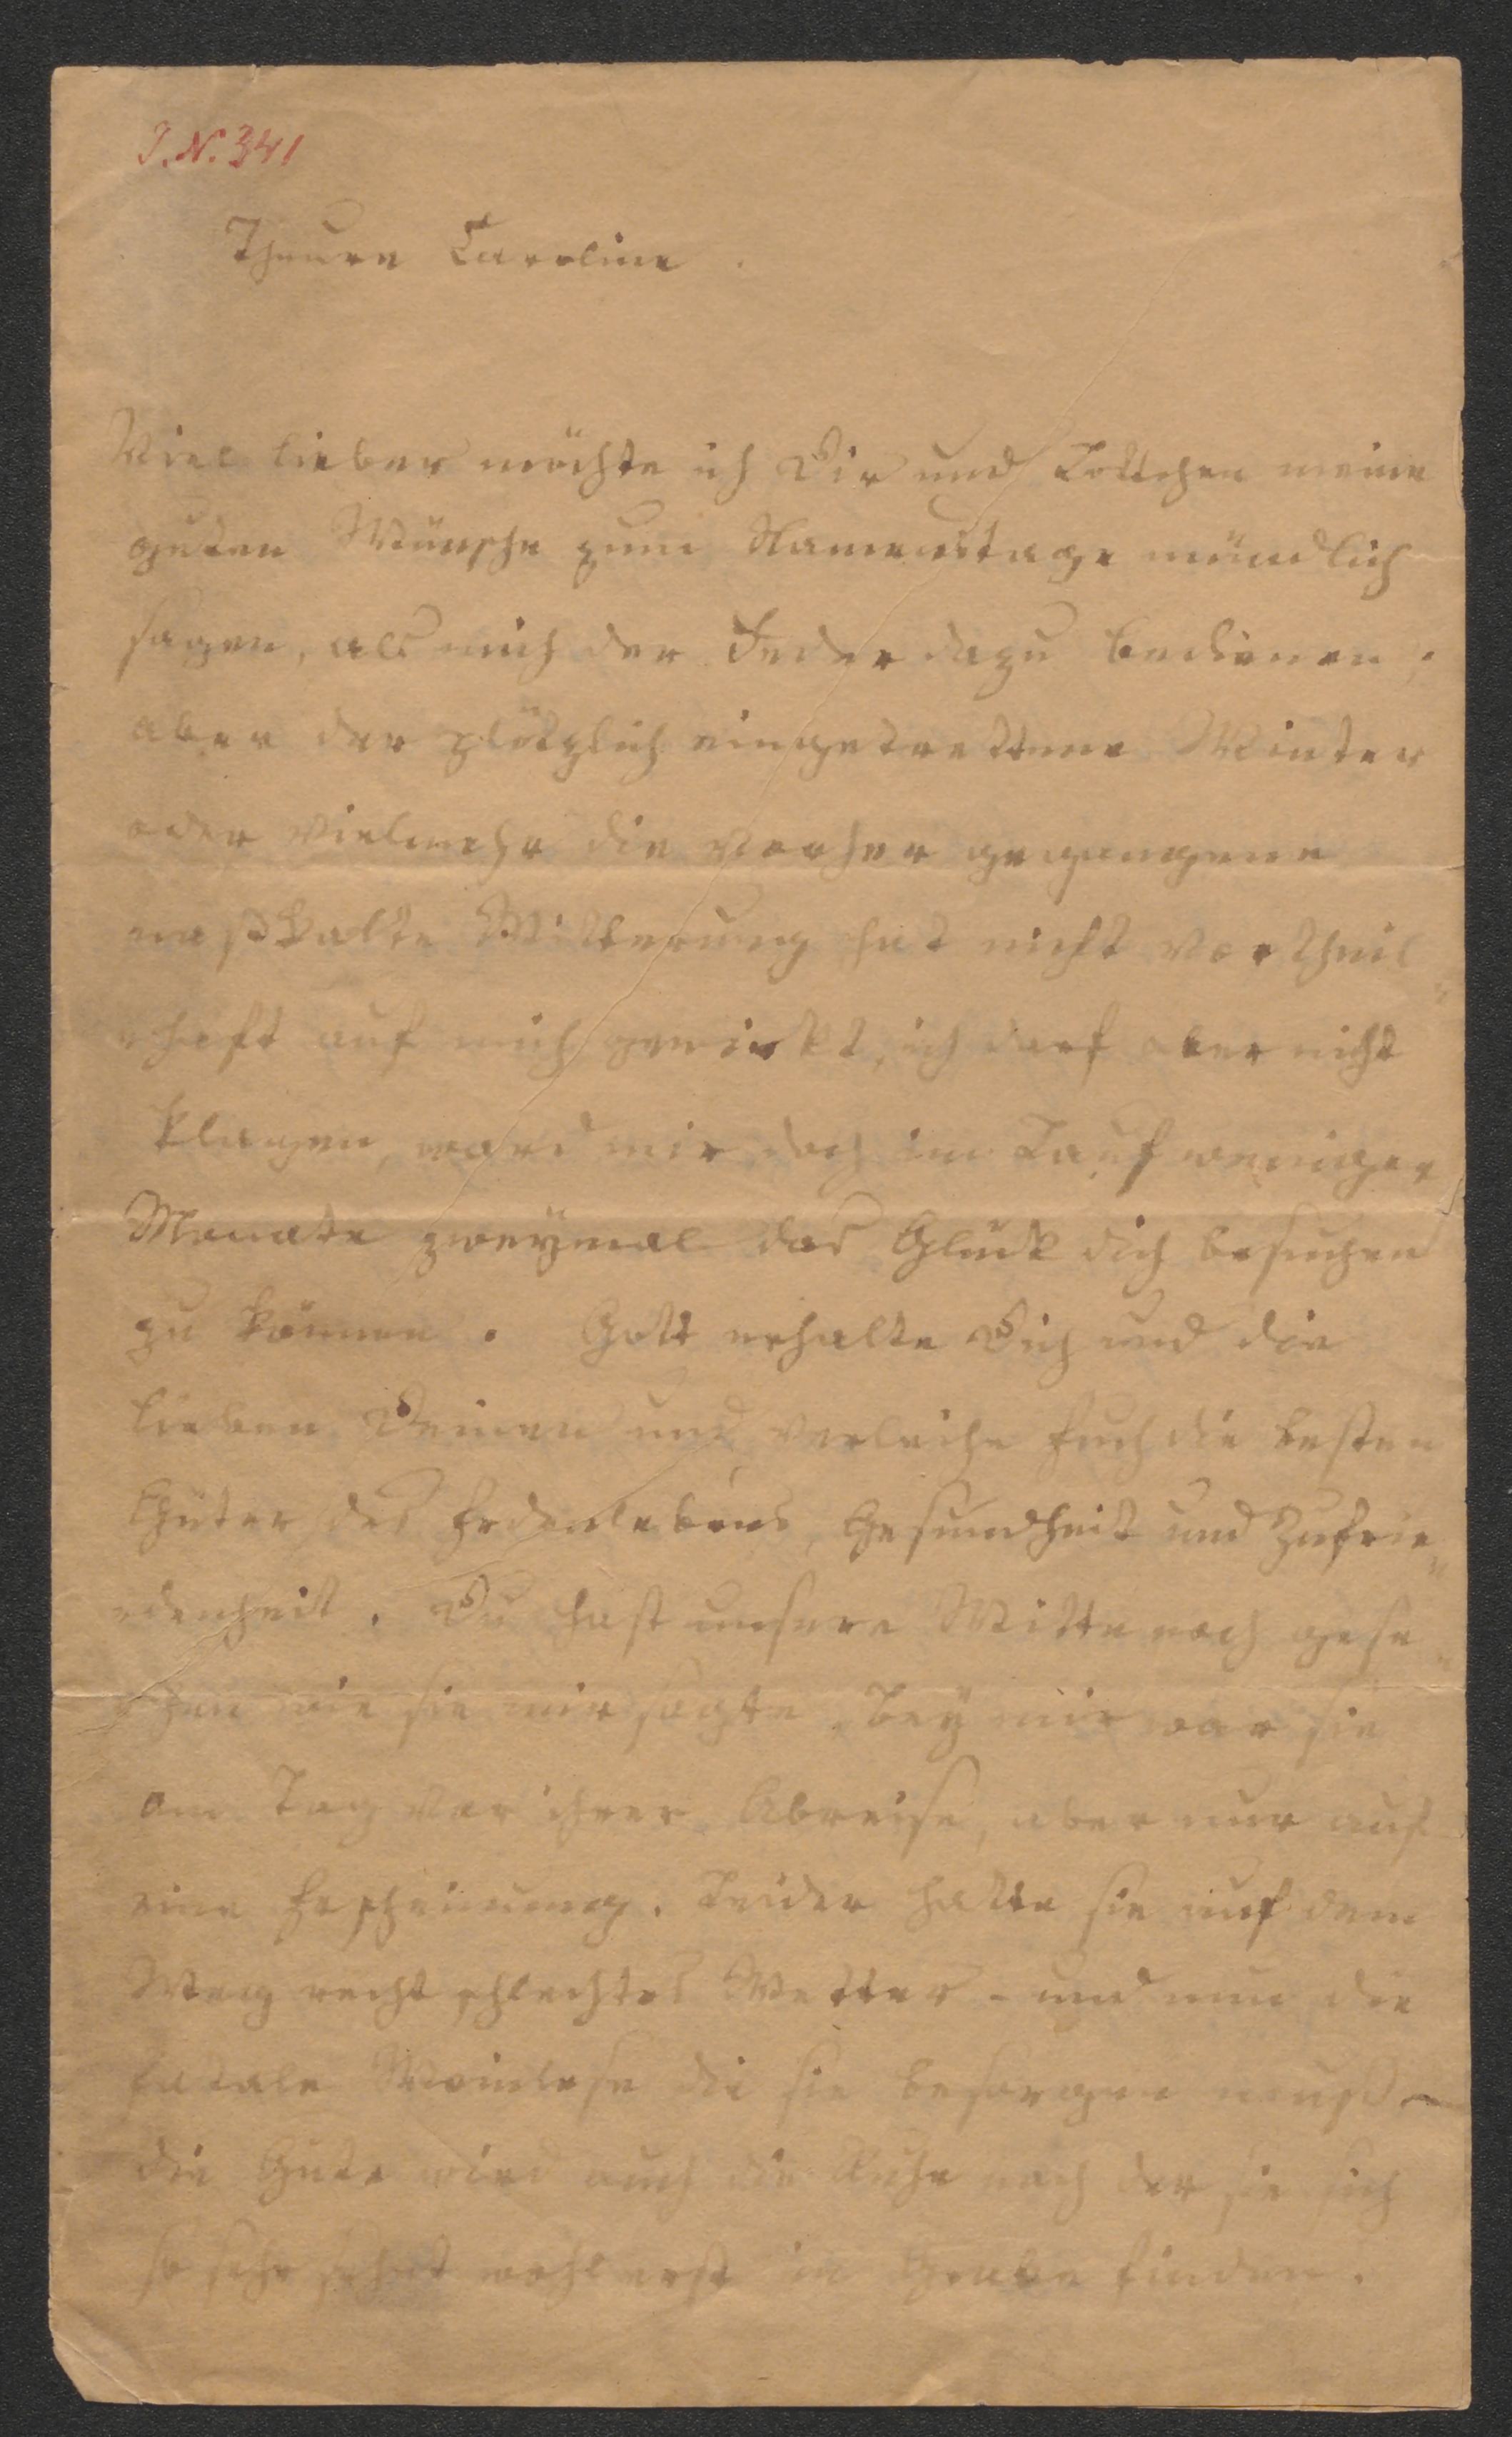 J. N. 341
Theure Caroline.
Viel lieber möchte ich Dir und Lottchen meine
guten Wünsche zum Namenstage mündlich
sagen, als mich der Feder dazu bedienen,
aber der plötzlich eingetrettene Winter
oder vielmehr die vorher gegangene
naßkalte Witterung hat nicht vortheil„
„haft auf mich gewirkt, ich darf aber nicht
klagen, ward mir doch im Lauf weniger
Monate zweymal das Glück dich besuchen
zu können. Gott erhalte Dich und die
lieben Deinen und verleihe Euch die besten
Güter des Erdenlebens, Gesundheit und Zufrie„
„denheit. Du hast unsere Mitte noch gese„
„hen wie sie mir sagte, bey mir war sie
am Tag vor ihrer Abreise, aber nur auf
eine Erscheinung. Leider hatte sie auf dem
Weg recht schlechtes Wetter - und nun die
fatale Weinlese die sie besorgen muß –
die Gute wird auch die Ruhe nach der sie sich
so sehr sehnt wohl erst im Grabe finden.